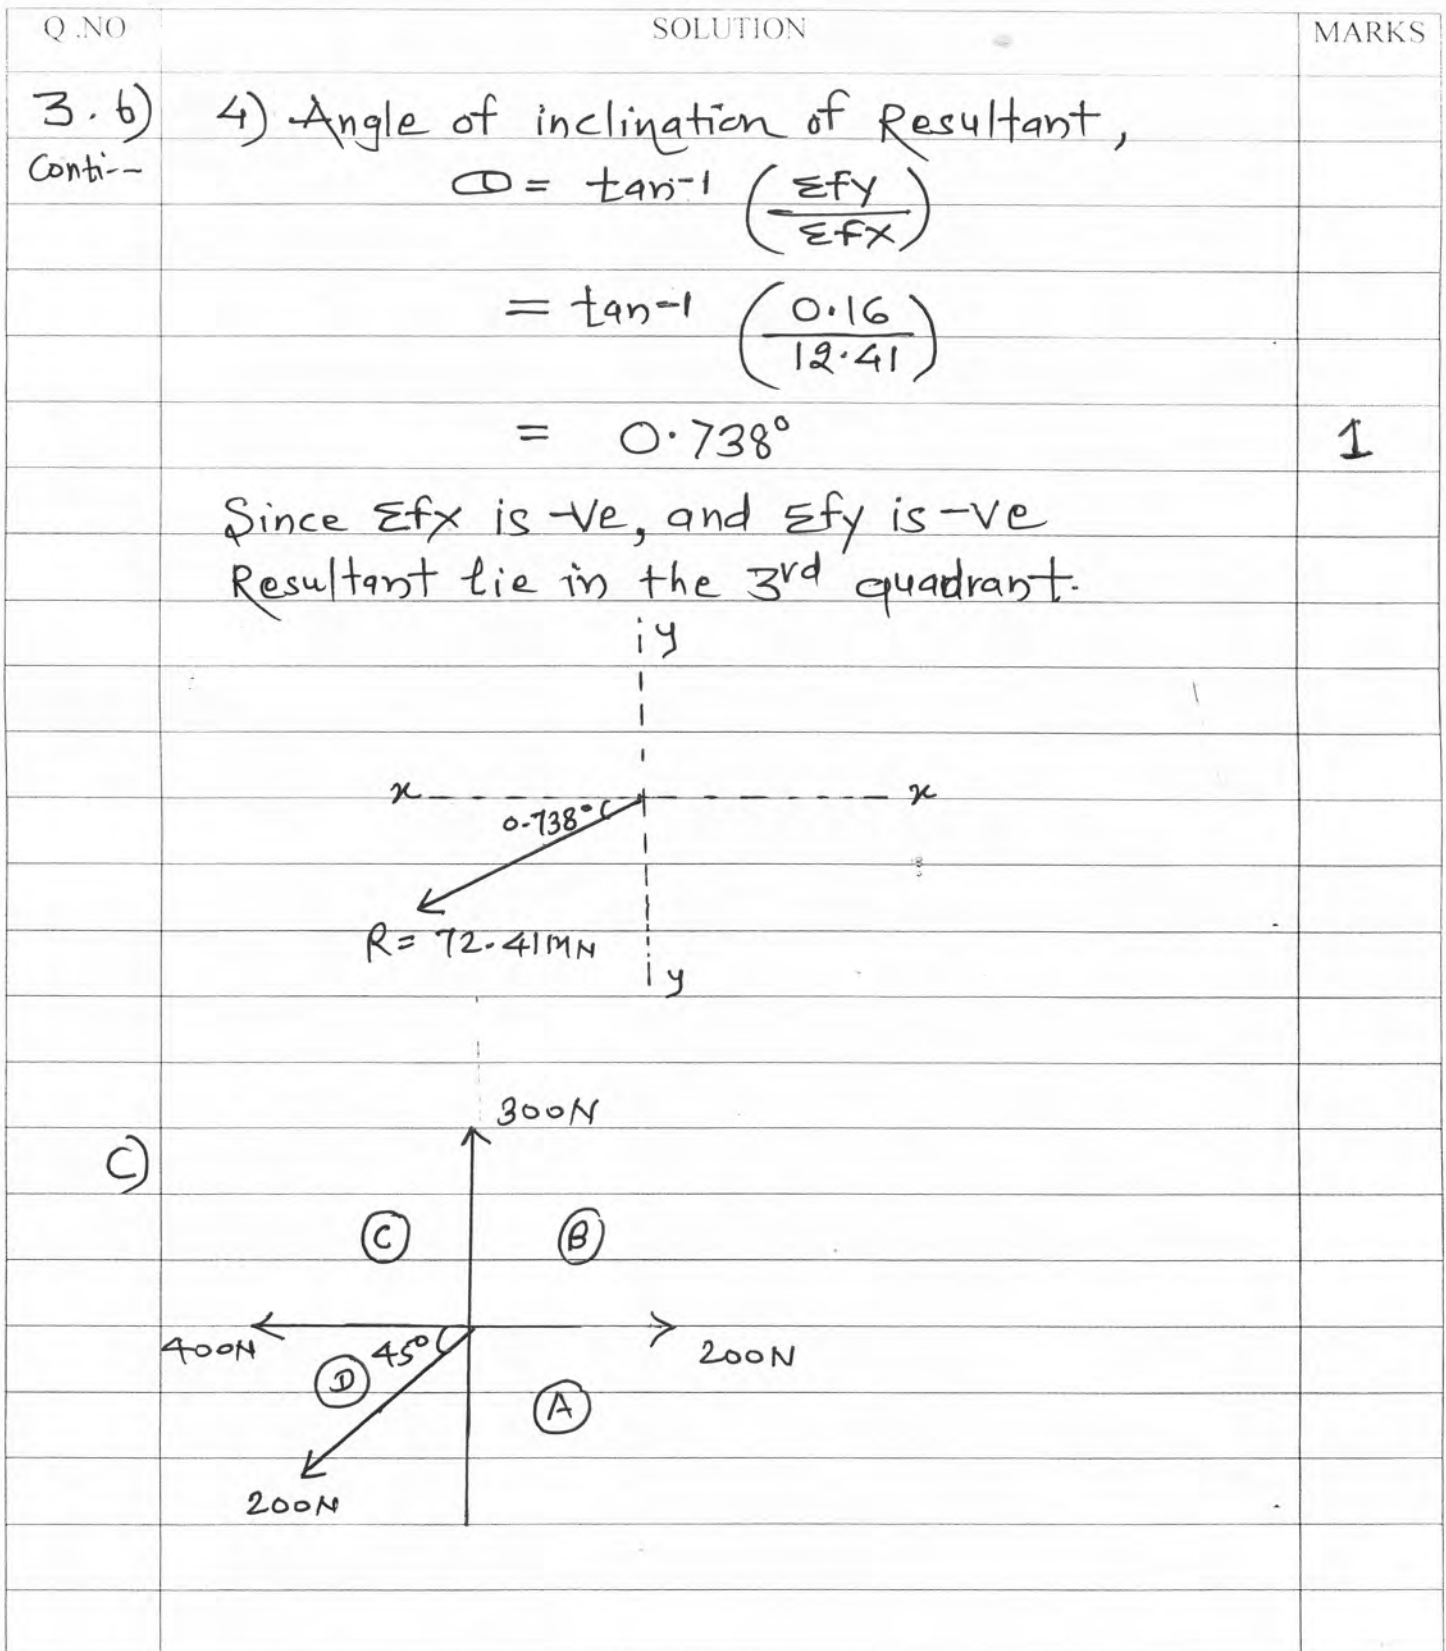 Q.NO SOLUTION MARKS
3. b) 4) Angle of inclination of Resultant,
Conti--
Θ = tan-1 (Σfy / Σfx)
= tan-1 (0.16 / 12.41)
= 0.738° 1
Since Σfx is -ve, and Σfy is -ve
Resultant lie in the 3rd quadrant.
y
x x
0.738°
R = 72.41MN
y
300N
C)
C B
400N 45° 200N
D A
200N